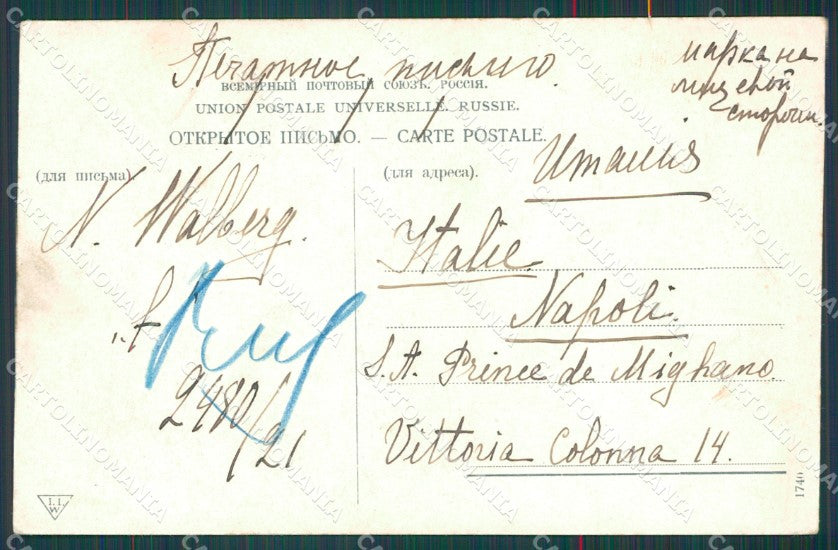 Печатное письмо.
марка на
лицевой
стороне.
ВСЕМІРНЫЙ ПОЧТОВЫЙ СОЮЗЪ. РОССІЯ.
UNION POSTALE UNIVERSELLE. RUSSIE.
ОТКРЫТОЕ ПИСЬМО. — CARTE POSTALE.
(для письма)
(для адреса).
N. Walberg.
2480/21
Италія
Italie.
Napoli.
S. A. Prince de Mignano.
Vittoria Colonna 14.
1746
I. I. W
CARTOLINOMANIA